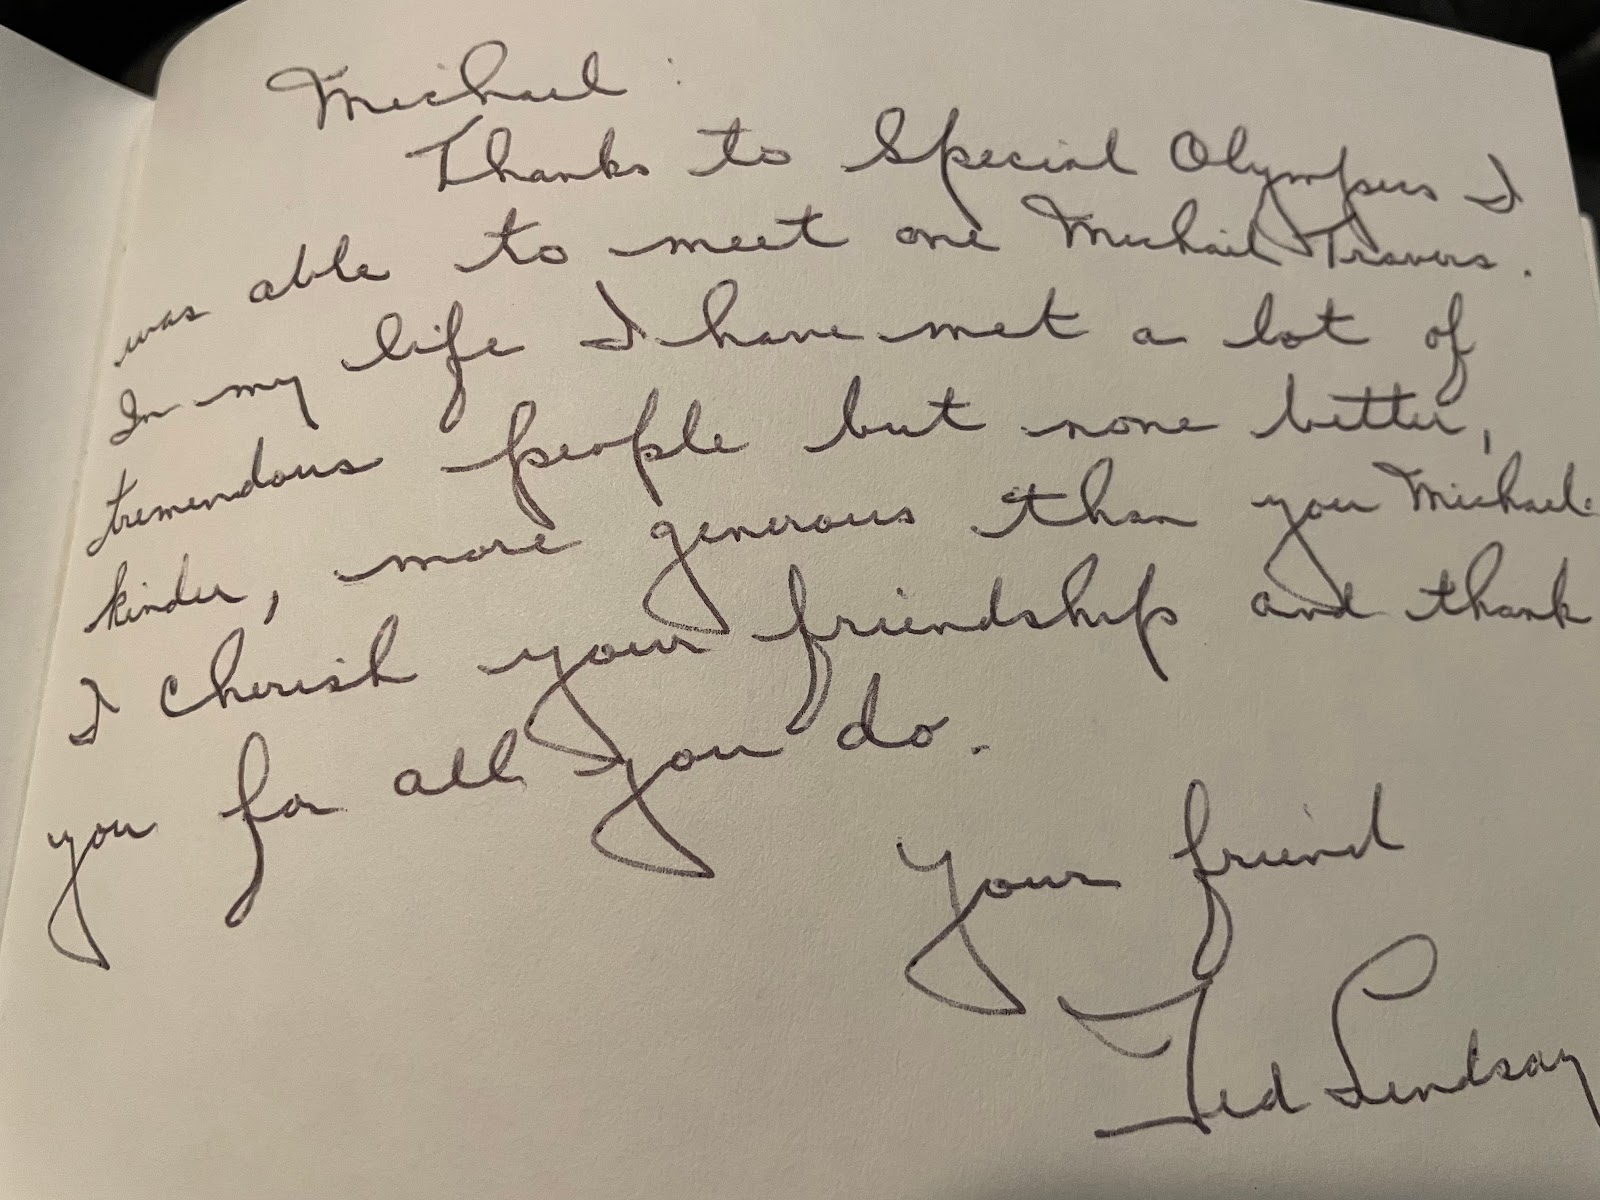 Michael:
Thanks to Special Olympics I
was able to meet one Michael Travers.
In my life I have met a lot of
tremendous people but none better,
kinder, more generous than you Michael.
I cherish your friendship and thank
you for all you do.
Your friend
Ted Lindsay